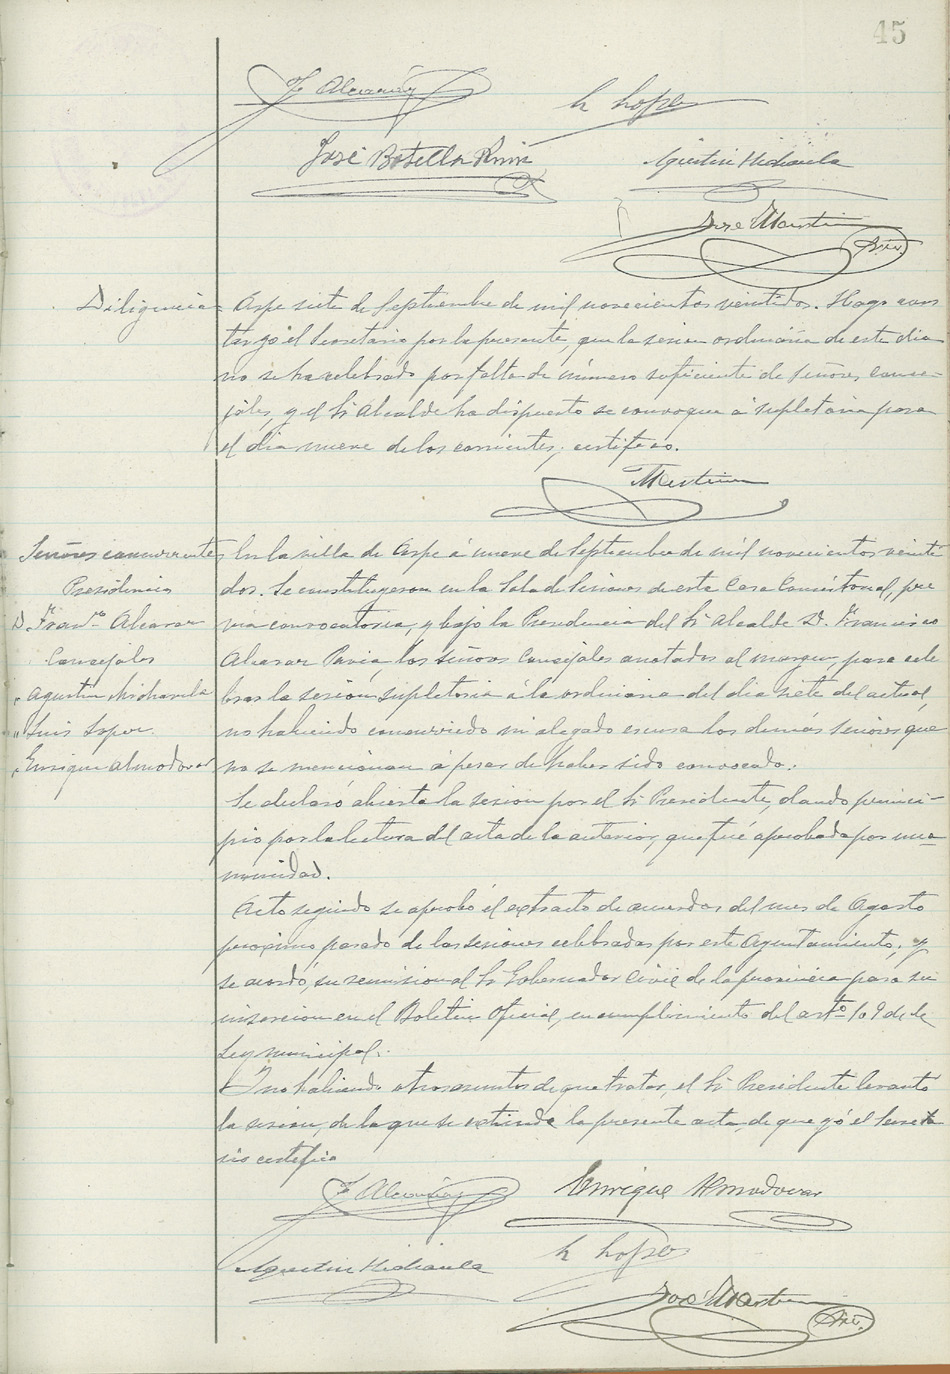 45
F Alcaraz
L Lopez
José Botella Ruiz
Agustin Michavila
Jose Martin
Srio.
Diligencia = Aspe siete de Septiembre de mil novecientos veintidos. Hago cons
tar yo el Secretario por la presente, que la sesion ordinaria de este dia
no se ha celebrado por falta de número suficiente de Señores conce-
jales, y el Sr Alcalde ha dispuesto se convoque á supletoria para
el dia nueve de los corrientes; certifico.
Martin
Señores concurrentes
Presidencia
D. Franco Alcaraz
Concejales
" Agustin Michavila
" Luis Lopez
" Enrique Almodovar
En la villa de Aspe á nueve de Septiembre de mil novecientos veinti
dos. Se constituyeron en la Sala de Sesiones de esta Casa Consistorial, pre
via convocatoria, y bajo la Presidencia del Sr Alcalde D. Francisco
Alcaraz Pavia, los señores Concejales anotados al margen, para cele
brar la sesion supletoria á la ordinaria del dia siete del actual,
no habiendo concurrido ni alegado escusa los demás señores que
no se mencionan á pesar de haber sido convocado.
Se declaró abierta la sesion por el Sr Presidente, dando princi-
pio por la lectura del acta de la anterior, que fué aprobada por una
nimidad.
Acto seguido se aprobó el extracto de acuerdos del mes de Agosto
proximo pasado de las sesiones celebradas por este Ayuntamiento; y
se acordó, su remision al Sr Gobernador Civil de la provincia para su
insercion en el Boletin Oficial, en cumplimiento del arto 109 de la
Ley municipal.
Y no habiendo otros asuntos de que tratar, el Sr Presidente levantó
la sesion, de la que se extiende la presente acta, de que yó el Secreta
rio certifico
F Alcaraz
Enrique Almodovar
Agustin Michavila
L Lopez
José Martin
Srio.